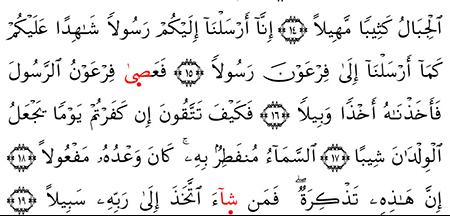 ٱلْجِبَالُ كَثِيبًا مَّهِيلاً ﴿١٤﴾ إِنَّآ أَرْسَلْنَآ إِلَيْكُمْ رَسُولاً شَـٰهِدًا عَلَيْكُمْ
كَمَآ أَرْسَلْنَآ إِلَىٰ فِرْعَوْنَ رَسُولاً ﴿١٥﴾ فَعَصَىٰ فِرْعَوْنُ ٱلرَّسُولَ
فَأَخَذْنَـٰهُ أَخْذًا وَبِيلاً ﴿١٦﴾ فَكَيْفَ تَتَّقُونَ إِن كَفَرْتُمْ يَوْمًا يَجْعَلُ
ٱلْوِلْدَٰنَ شِيبًا ﴿١٧﴾ ٱلسَّمَآءُ مُنفَطِرٌۢ بِهِۦ ۚ كَانَ وَعْدُهُۥ مَفْعُولاً ﴿١٨﴾
إِنَّ هَـٰذِهِۦ تَذْكِرَةٌ ۖ فَمَن شَآءَ ٱتَّخَذَ إِلَىٰ رَبِّهِۦ سَبِيلاً ﴿١٩﴾